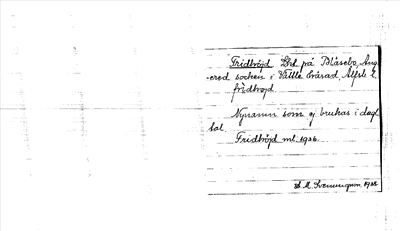 Fridhöjd Lht på Blåsebo, Ang-
ered socken i Vättle härad, Älfsb. l.
fridhöjd
Nynamn som ej brukas i dagl
tal.
Fridhöjd ml. 1936
A M. Svenungson 1938